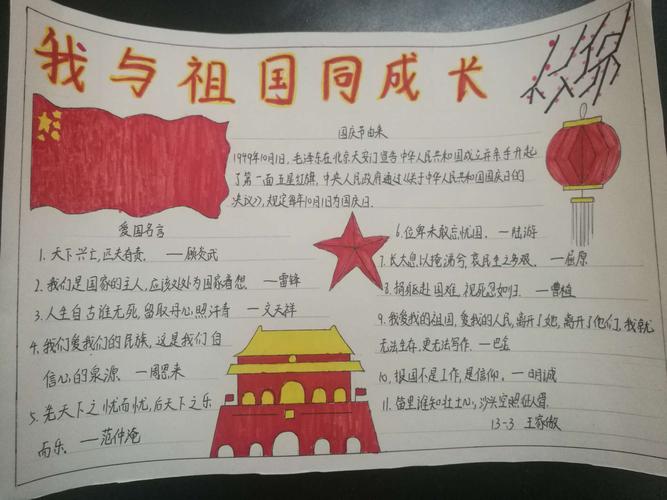 我与祖国同成长
国庆节由来
1949年10月1日,毛泽东在北京天安门宣告中华人民共和国成立并亲手升起
了第一面五星红旗,中央人民政府通过《关于中华人民共和国国庆日的
决议》,规定每年10月1日为国庆日.
爱国名言
1. 天下兴亡,匹夫有责. —顾炎武
2. 我们是国家的主人,应该处处为国家着想 —雷锋
3. 人生自古谁无死,留取丹心照汗青 —文天祥
4. 我们爱我们的民族,这是我们自
信心的泉源 —周恩来
5. 先天下之忧而忧,后天下之乐
而乐. —范仲淹
6. 位卑未敢忘忧国. —陆游
7. 长太息以掩涕兮,哀民生之多艰. —屈原
8. 捐躯赴国难,视死忽如归. —曹植
9. 我爱我的祖国,爱我的人民,离开了她,离开了他们,我就
无法生存,更无法写作. —巴金
10. 报国不是工作,是信仰. —明诚
11. 笛里谁知壮士心,沙头空照征人骨.
13-3 王家傲